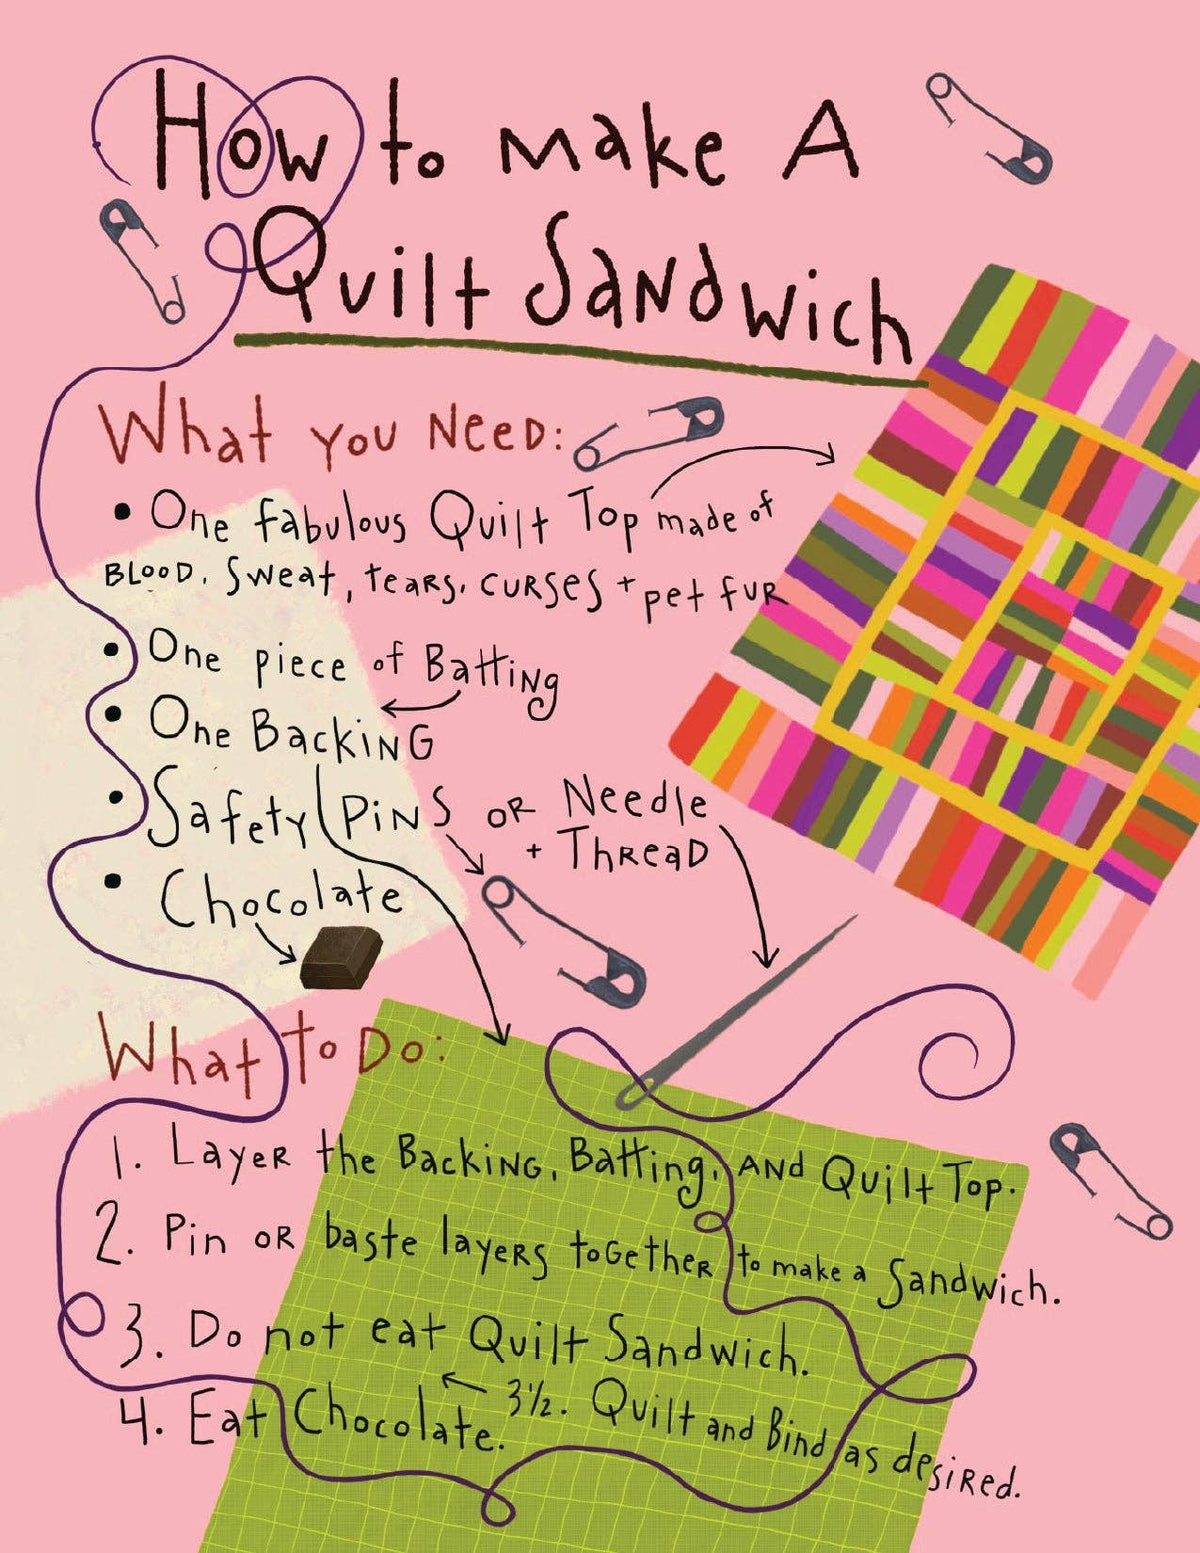 How to make A
Quilt Sandwich
What you Need:
• One fabulous Quilt Top made of
Blood, Sweat, tears, curses + pet fur
• One piece of Batting
• One Backing
• Safety Pins or Needle
+ Thread
• Chocolate
What to Do:
1. Layer the Backing, Batting, and Quilt Top.
2. Pin or baste layers together to make a Sandwich.
3. Do not eat Quilt Sandwich.
3½. Quilt and Bind as desired.
4. Eat Chocolate.